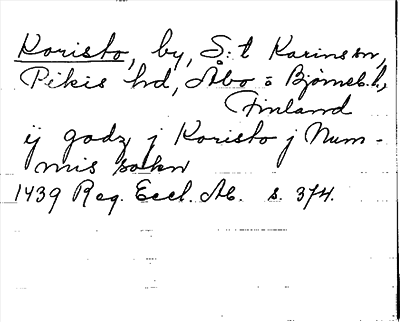 Koristo, by, S:t Karins sn,
Pikis hd, Åbo o Björneb. l.,
Finland
ij godz j Koristo j Num-
mis sokn
1439 Reg. Eccl. Ab. s. 374.